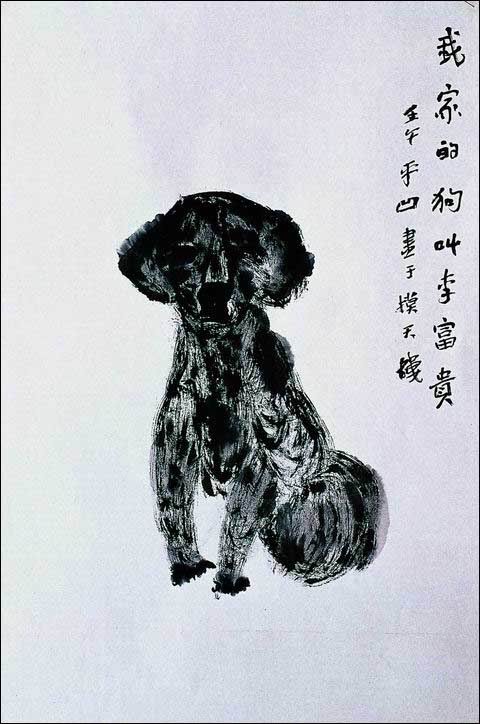 我家的狗叫李富貴
壬午平凹畫于摸天